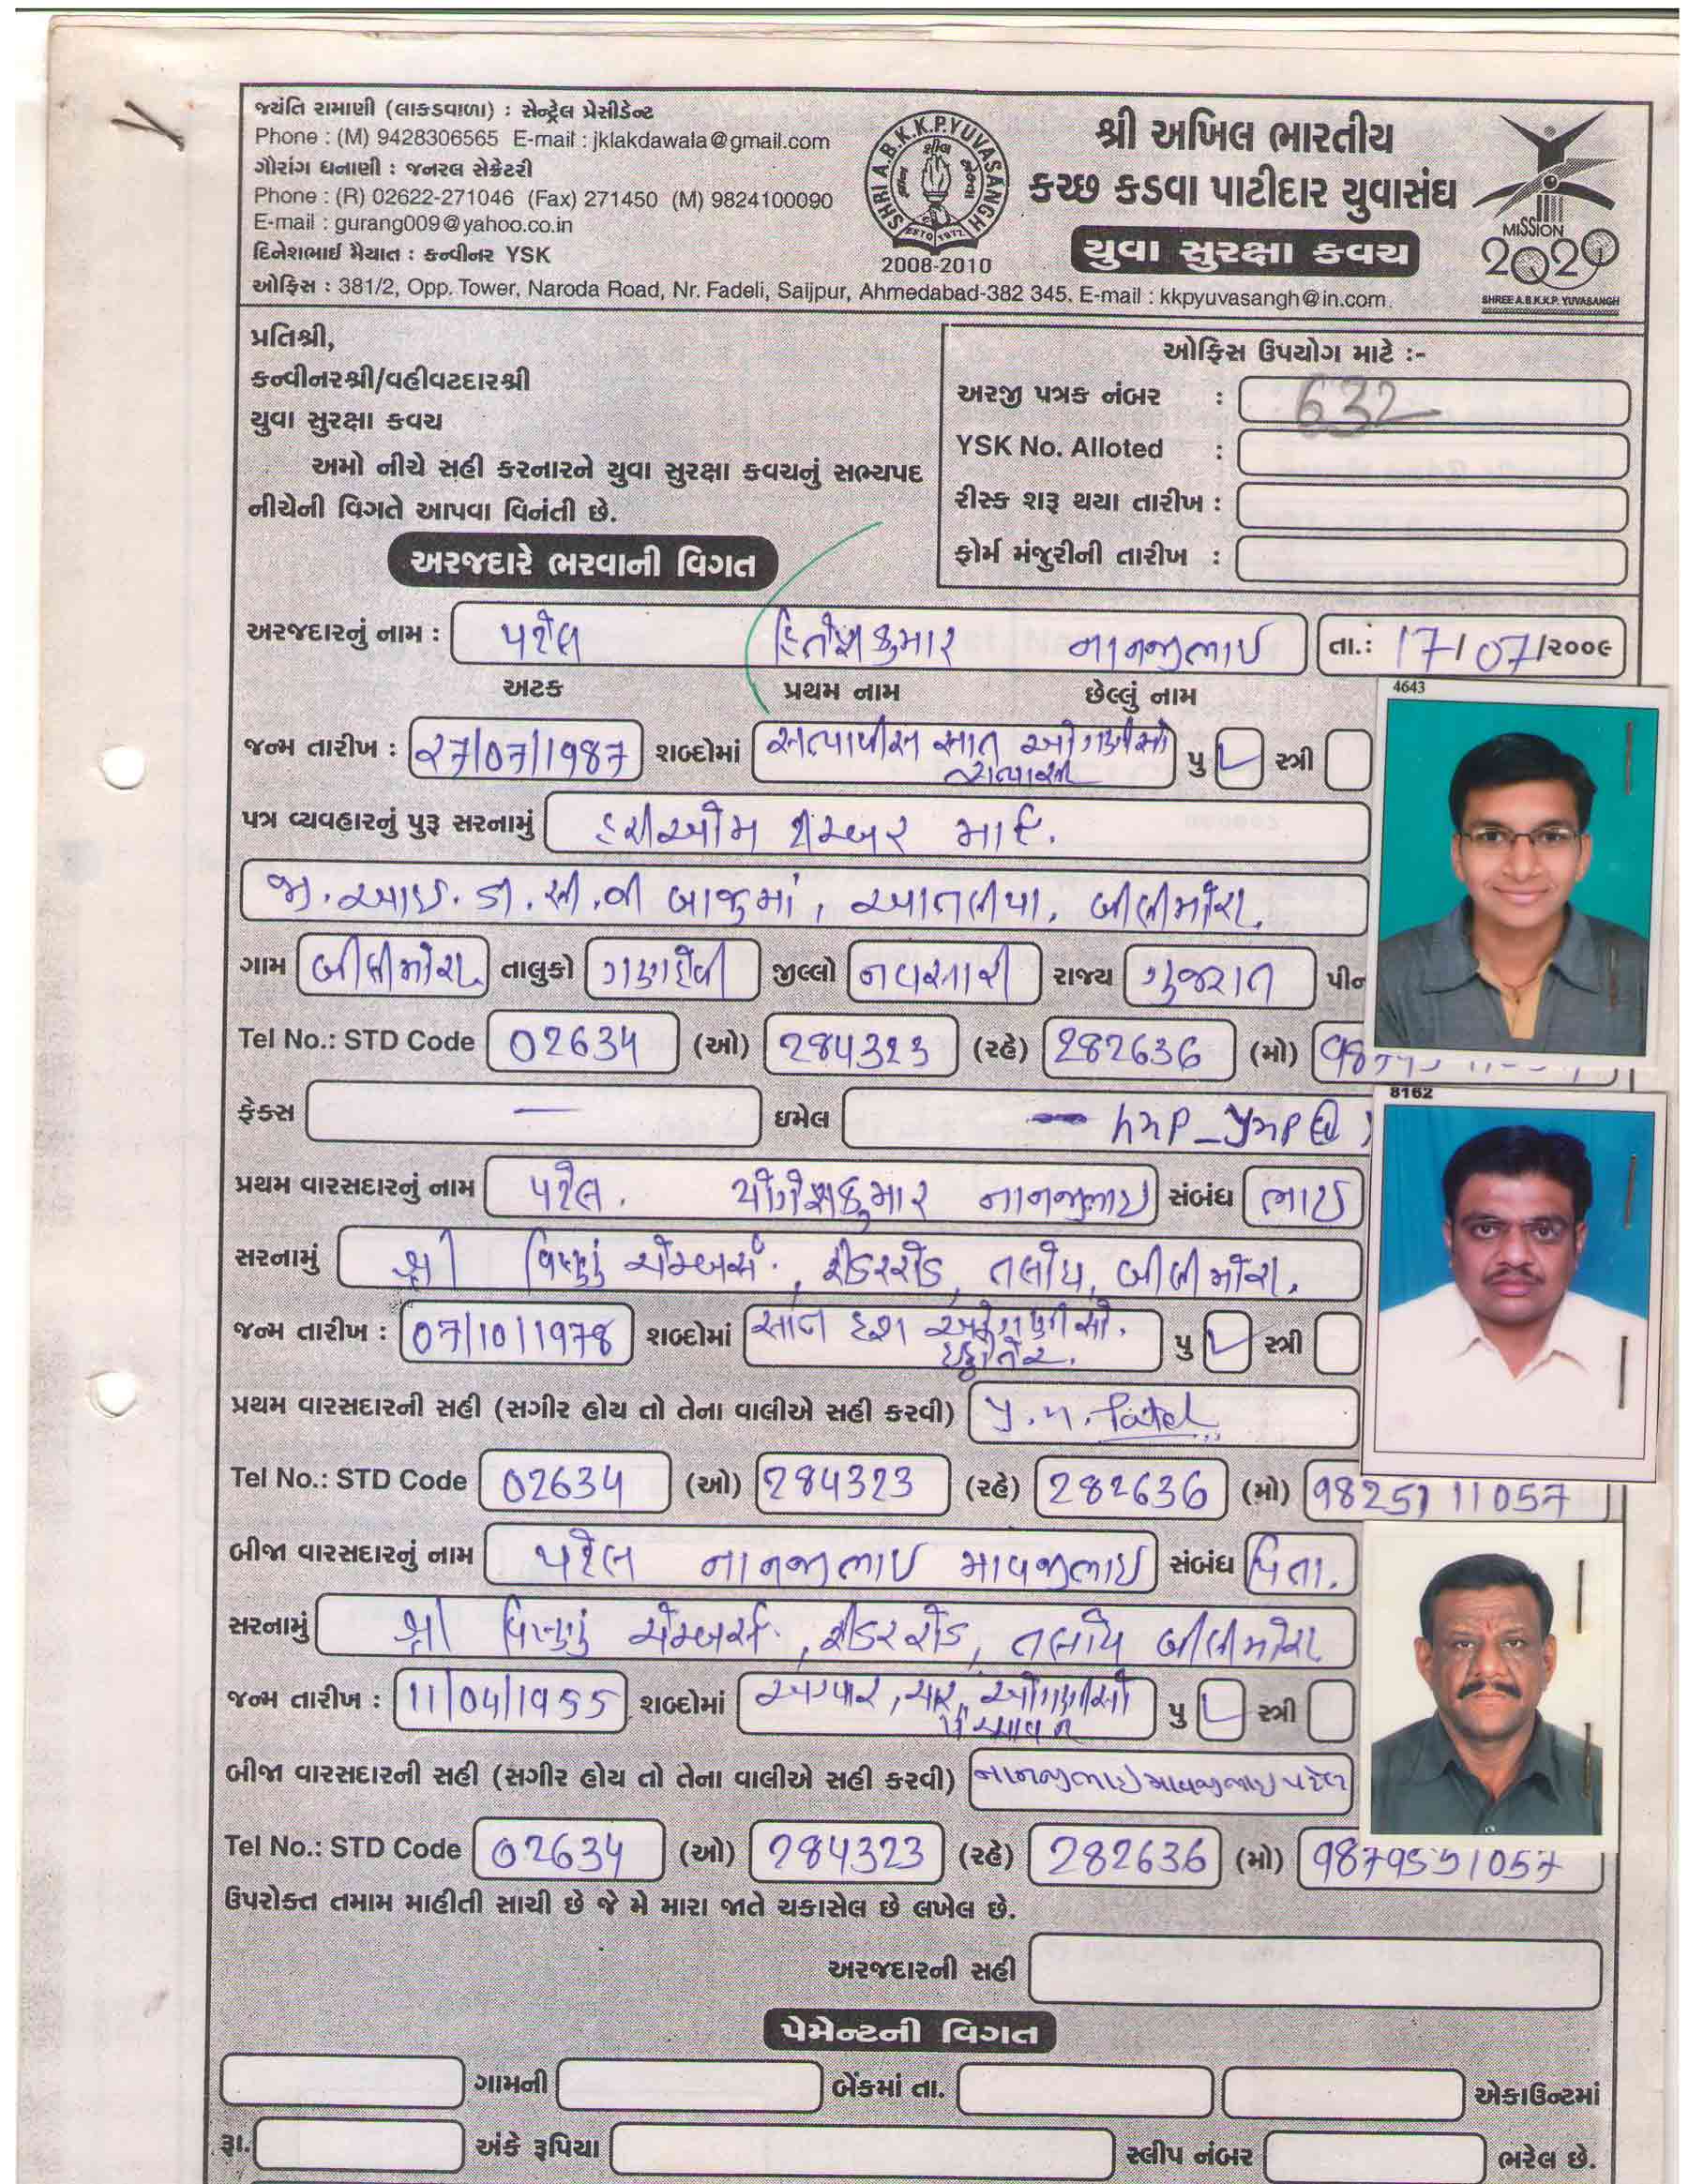 જયંતિ રામાણી (લાકડવાળા) : સેન્ટ્રેલ પ્રેસીડેન્ટ
Phone : (M) 9428306565 E-mail : jklakdawala@gmail.com
ગૌરાંગ ધનાણી : જનરલ સેક્રેટરી
Phone : (R) 02622-271046 (Fax) 271450 (M) 9824100090
E-mail : gurang009@yahoo.co.in
દિનેશભાઈ મૈયાત : કન્વીનર YSK
ઓફિસ : 381/2, Opp. Tower, Naroda Road, Nr. Fadeli, Saijpur, Ahmedabad-382 345. E-mail : kkpyuvasangh@in.com.
SHRI A.B.K.K.P. YUVASANGH
ESTD 1972
2008-2010
શ્રી અખિલ ભારતીય
કચ્છ કડવા પાટીદાર યુવાસંઘ
યુવા સુરક્ષા કવચ
MISSION
2020
SHREE A.B.K.K.P. YUVASANGH
પ્રતિશ્રી,
કન્વીનરશ્રી/વહીવટદારશ્રી
યુવા સુરક્ષા કવચ
અમો નીચે સહી કરનારને યુવા સુરક્ષા કવચનું સભ્યપદ
નીચેની વિગતે આપવા વિનંતી છે.
ઓફિસ ઉપયોગ માટે :-
અરજી પત્રક નંબર : 632
YSK No. Alloted :
રીસ્ક શરૂ થયા તારીખ :
ફોર્મ મંજુરીની તારીખ :
અરજદારે ભરવાની વિગત
અરજદારનું નામ : પટેલ હિતેશકુમાર નાનજીભાઈ તા.: 17/07/૨૦૦૯
અટક પ્રથમ નામ છેલ્લું નામ
4643
જન્મ તારીખ : 27/07/1987 શબ્દોમાં સત્યાવીસ સાત ઓગણીસો સત્યાસી પુ સ્ત્રી
પત્ર વ્યવહારનું પુરૂ સરનામું હરીઓમ ટીમ્બર માર્ટ.
જી.આઈ.ડી.સી.ની બાજુમાં, આંતલીયા, બીલીમોરા.
ગામ બીલીમોરા. તાલુકો ગણદેવી જીલ્લો નવસારી રાજ્ય ગુજરાત પીન
Tel No.: STD Code 02634 (ઓ) 284323 (રહે) 282636 (મો)
ફેક્સ — ઇમેલ hnp_ynp@
8162
પ્રથમ વારસદારનું નામ પટેલ. યોગેશકુમાર નાનજીભાઈ સંબંધ ભાઈ
સરનામું શ્રી વિષ્ણું ચેમ્બર્સ, રીડરરોડ, તલોધ, બીલીમોરા.
જન્મ તારીખ : 07/10/1978 શબ્દોમાં સાત દશ ઓગણીસો. ઇઠ્ઠોતેર. પુ સ્ત્રી
પ્રથમ વારસદારની સહી (સગીર હોય તો તેના વાલીએ સહી કરવી) y.n. Patel
Tel No.: STD Code 02634 (ઓ) 284323 (રહે) 282636 (મો) 9825111057
બીજા વારસદારનું નામ પટેલ નાનજીભાઈ માવજીભાઈ સંબંધ પિતા.
સરનામું શ્રી વિષ્ણું ચેમ્બર્સ, રીડરરોડ, તલોધ બીલીમોરા
જન્મ તારીખ : 11/04/1955 શબ્દોમાં અગ્યાર, ચાર, ઓગણીસો પંચાવન પુ સ્ત્રી
બીજા વારસદારની સહી (સગીર હોય તો તેના વાલીએ સહી કરવી) નાનજીભાઈ માવજીભાઈ પટેલ
Tel No.: STD Code 02634 (ઓ) 284323 (રહે) 282636 (મો) 9879551057
ઉપરોક્ત તમામ માહીતી સાચી છે જે મે મારા જાતે ચકાસેલ છે લખેલ છે.
અરજદારની સહી
પેમેન્ટની વિગત
ગામની બેંકમાં તા. એકાઉન્ટમાં
રૂા. અંકે રૂપિયા સ્લીપ નંબર ભરેલ છે.